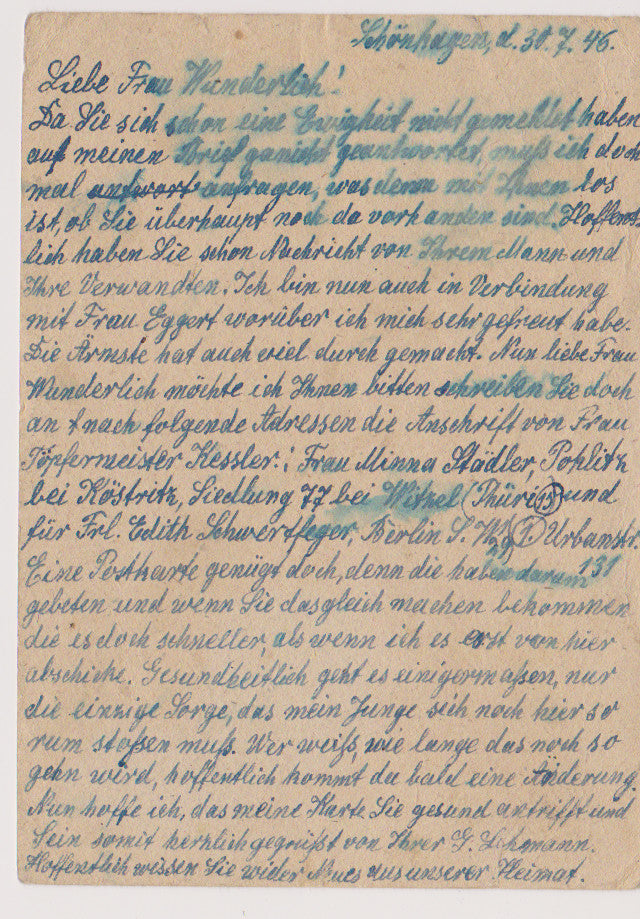 Schönhagen, d. 30.7.46.
Liebe Frau Wunderlich!
Da Sie sich schon eine Ewigkeit nicht gemeldet haben
auf meinen Brief garnicht geantwortet, muß ich doch
mal antwort anfragen, was denn mit Ihnen los
ist, ob Sie überhaupt noch da vorhanden sind. Hoffent-
lich haben Sie schon Nachricht von Ihrem Mann und
Ihre Verwandten. Ich bin nun auch in Verbindung
mit Frau Eggert worüber ich mich sehr gefreut habe.
Die Ärmste hat auch viel durch gemacht. Nun liebe Frau
Wunderlich möchte ich Ihnen bitten schreiben Sie doch
an nach folgende Adressen die Anschrift von Frau
Töpfermeister Kessler.: Frau Minna Städler, Pohlitz
bei Köstritz, Siedlung 77 bei Witzel (Thüri 15) und
für Frl. Edith Schwertfeger, Berlin S.W. 29 (1) Urbanstr.
Eine Postkarte genügt doch, denn die haben darum 131
gebeten und wenn Sie das gleich machen bekommen
die es doch schneller, als wenn ich es erst von hier
abschicke. Gesundheitlich geht es einigermaßen, nur
die einzige Sorge, das mein Junge sich noch hier so
rum stoßen muß. Wer weiß, wie lange das noch so
gehn wird, hoffentlich kommt da bald eine Änderung.
Nun hoffe ich, das meine Karte Sie gesund antrifft und
Sein somit herzlich gegrüßt von Ihrer G. Lehmann.
Hoffentlich wissen Sie wider Neues aus unserer Heimat.